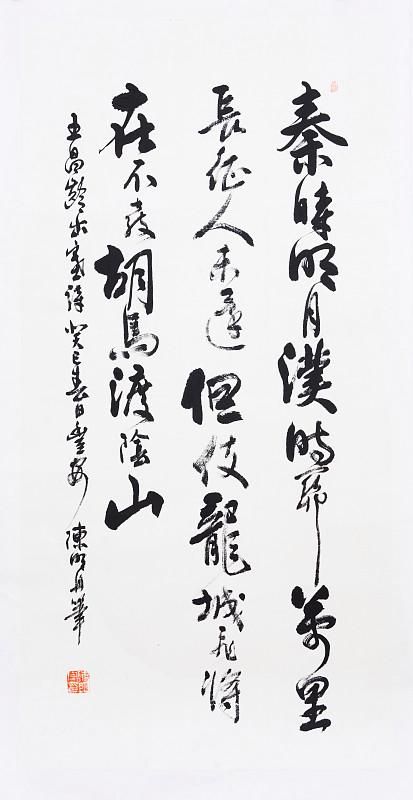 秦時明月漢時關萬里
長征人未還但使龍城飛將
在不教胡馬渡陰山
王昌齡出塞詩癸巳春日 陳明 筆